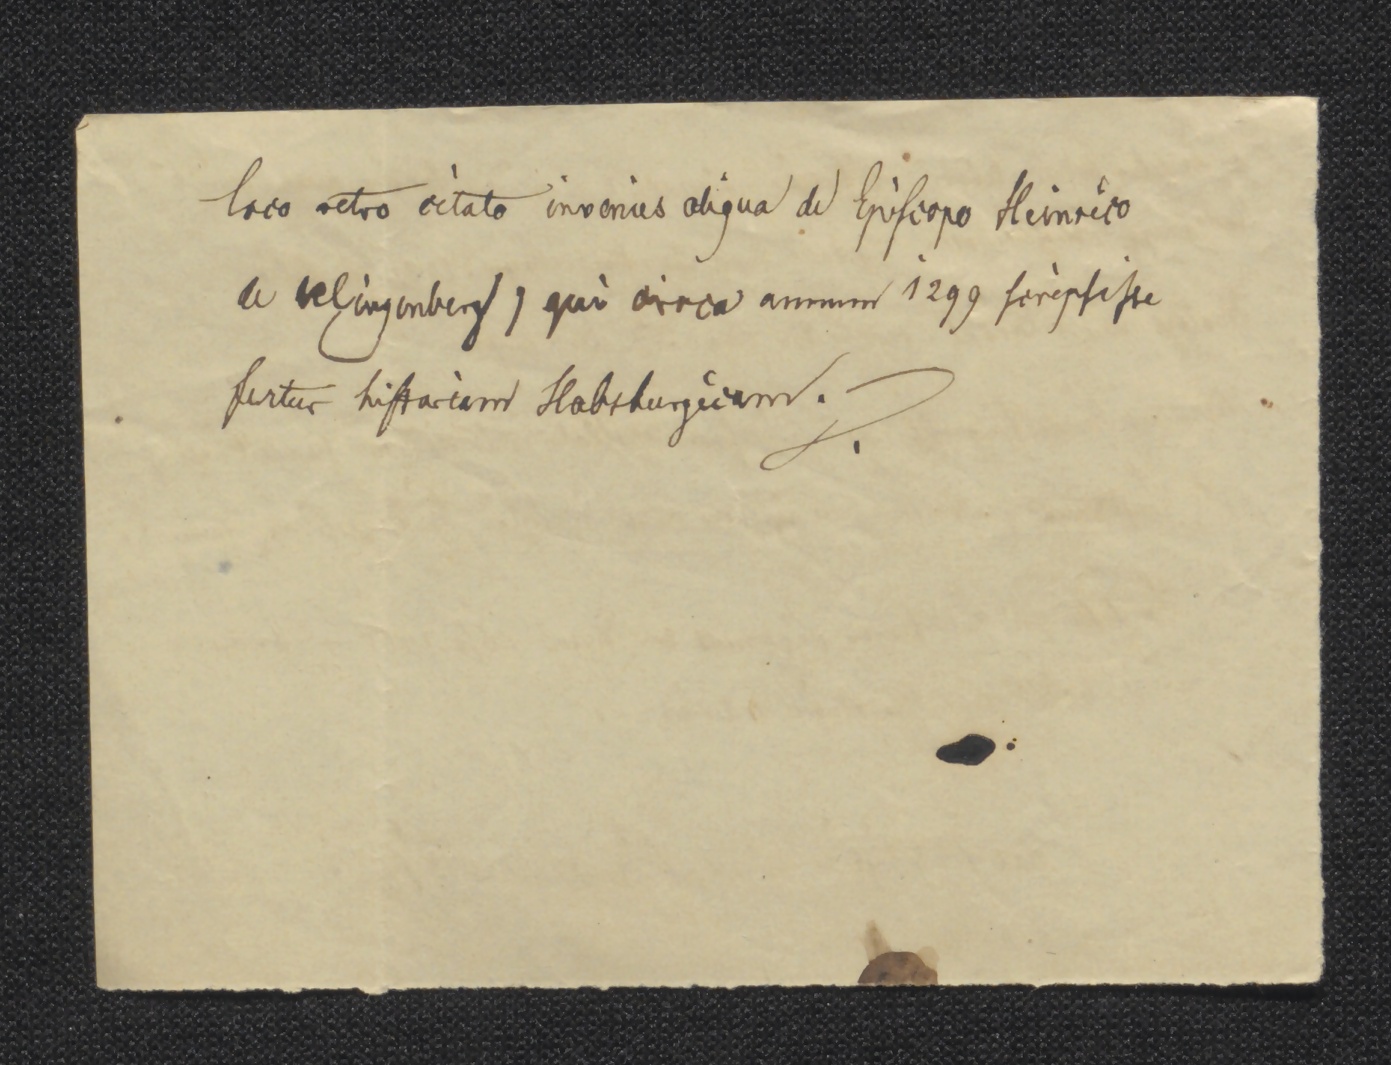 loco retro citato invenies aliqua de Episcopo Heinrico
de Klingenberg, qui circa annum 1299 scripsisse
fertur historiam Habsburgicam.